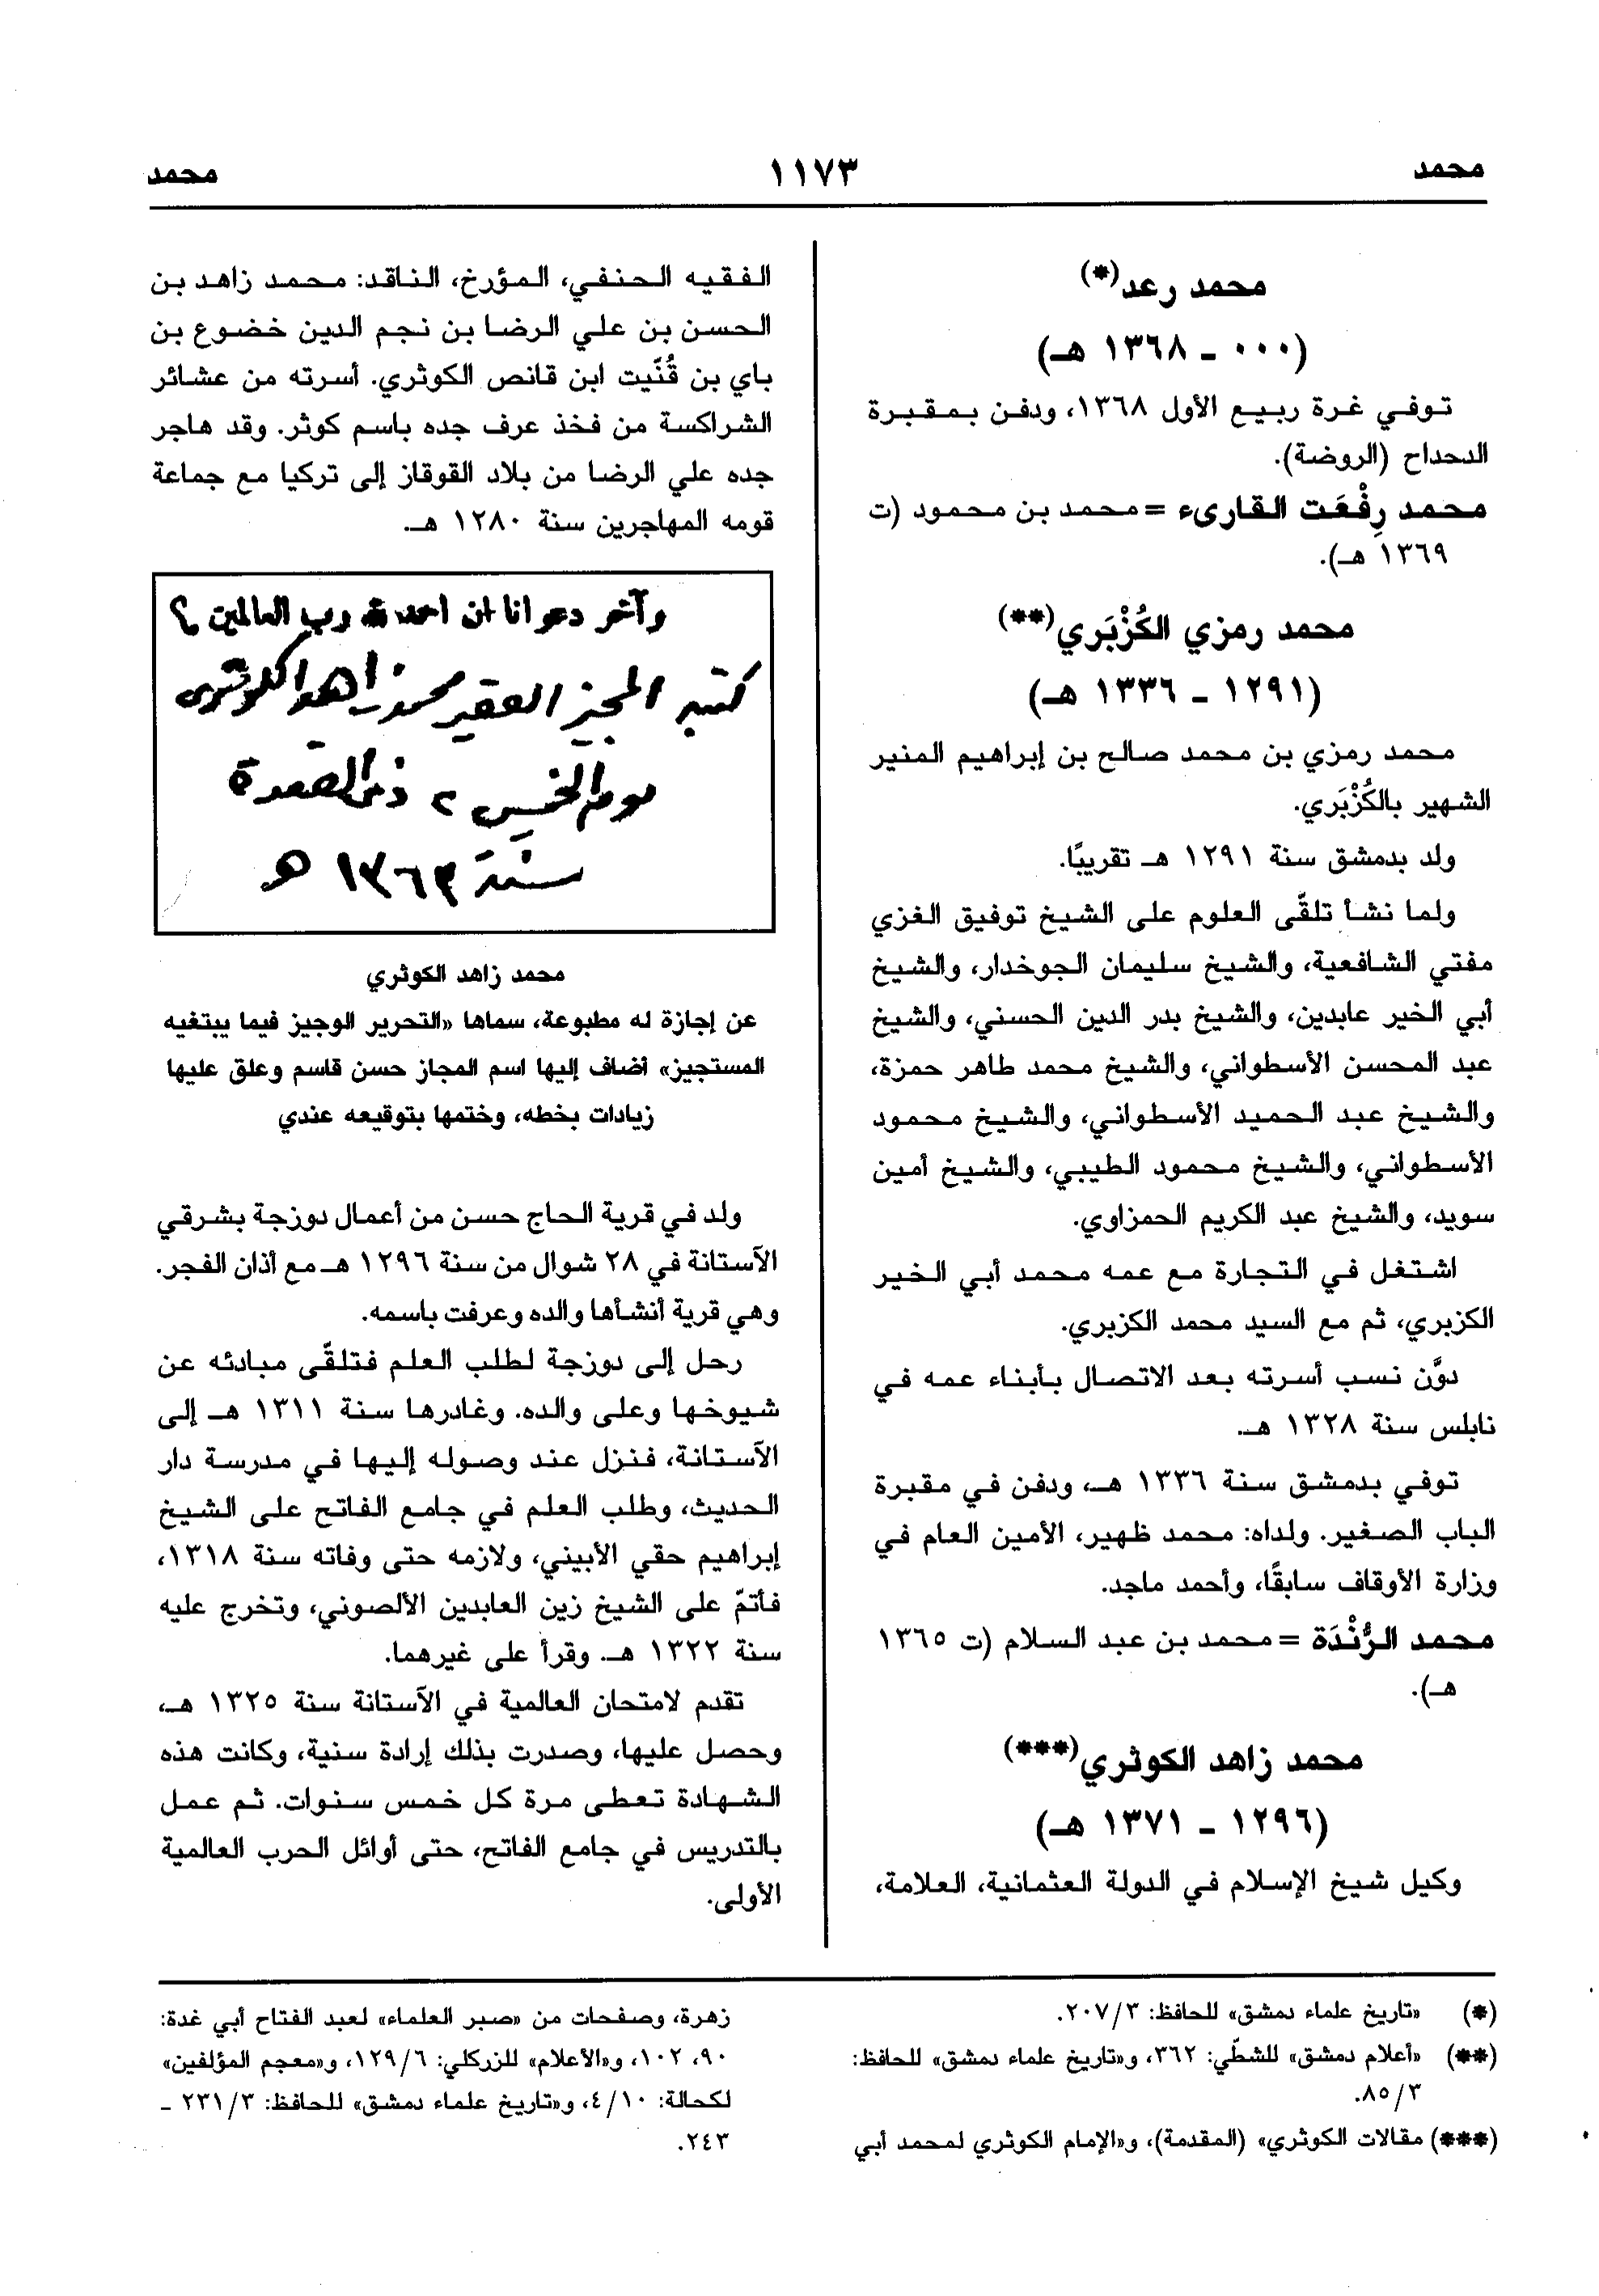 محمد
١١٧٣
محمد
محمد رعد(*)
(٠٠٠ ـ ١٣٦٨ هـ)
توفي غرة ربيع الأول ١٣٦٨، ودفن بمقبرة
الدحداح (الروضة).
محمد رِفْعَت القارىء = محمد بن محمود (ت
١٣٦٩ هـ).
محمد رمزي الكُزْبَري(**)
(١٢٩١ ـ ١٣٣٦ هـ)
محمد رمزي بن محمد صالح بن إبراهيم المنير
الشهير بالكُزْبَري.
ولد بدمشق سنة ١٢٩١ هـ تقريبًا.
ولما نشأ تلقّى العلوم على الشيخ توفيق الغزي
مفتي الشافعية، والشيخ سليمان الجوخدار، والشيخ
أبي الخير عابدين، والشيخ بدر الدين الحسني، والشيخ
عبد المحسن الأسطواني، والشيخ محمد طاهر حمزة،
والشيخ عبد الحميد الأسطواني، والشيخ محمود
الأسطواني، والشيخ محمود الطيبي، والشيخ أمين
سويد، والشيخ عبد الكريم الحمزاوي.
اشتغل في التجارة مع عمه محمد أبي الخير
الكزبري، ثم مع السيد محمد الكزبري.
دوَّن نسب أسرته بعد الاتصال بأبناء عمه في
نابلس سنة ١٣٢٨ هـ.
توفي بدمشق سنة ١٣٣٦ هـ، ودفن في مقبرة
الباب الصغير. ولداه: محمد ظهير، الأمين العام في
وزارة الأوقاف سابقًا، وأحمد ماجد.
محمد الرُّنْدَة = محمد بن عبد السلام (ت ١٣٦٥
هـ).
محمد زاهد الكوثري(***)
(١٢٩٦ ـ ١٣٧١ هـ)
وكيل شيخ الإسلام في الدولة العثمانية، العلامة،
الفقيه الحنفي، المؤرخ، الناقد: محمد زاهد بن
الحسن بن علي الرضا بن نجم الدين خضوع بن
باي بن قُنَّيت ابن قانص الكوثري. أسرته من عشائر
الشراكسة من فخذ عرف جده باسم كوثر. وقد هاجر
جده علي الرضا من بلاد القوقاز إلى تركيا مع جماعة
قومه المهاجرين سنة ١٢٨٠ هـ.
وآخر دعوانا ان احمد لله رب العالمين
كتبه المجيز الفقير محمد زاهد الكوثري
يوم الخميس ٢ ذى القعدة
سنة ١٣٦٣ هـ
محمد زاهد الكوثري
عن إجازة له مطبوعة، سماها «التحرير الوجيز فيما يبتغيه
المستجيز» أضاف إليها اسم المجاز حسن قاسم وعلق عليها
زيادات بخطه، وختمها بتوقيعه عندي
ولد في قرية الحاج حسن من أعمال دوزجة بشرقي
الآستانة في ٢٨ شوال من سنة ١٢٩٦ هـ مع أذان الفجر.
وهي قرية أنشأها والده وعرفت باسمه.
رحل إلى دوزجة لطلب العلم فتلقّى مبادئه عن
شيوخها وعلى والده. وغادرها سنة ١٣١١ هـ إلى
الآستانة، فنزل عند وصوله إليها في مدرسة دار
الحديث، وطلب العلم في جامع الفاتح على الشيخ
إبراهيم حقي الأبيني، ولازمه حتى وفاته سنة ١٣١٨،
فأتمّ على الشيخ زين العابدين الألصوني، وتخرج عليه
سنة ١٣٢٢ هـ. وقرأ على غيرهما.
تقدم لامتحان العالمية في الآستانة سنة ١٣٢٥ هـ،
وحصل عليها، وصدرت بذلك إرادة سنية، وكانت هذه
الشهادة تعطى مرة كل خمس سنوات. ثم عمل
بالتدريس في جامع الفاتح، حتى أوائل الحرب العالمية
الأولى.
(*) «تاريخ علماء دمشق» للحافظ: ٣/ ٢٠٧.
(**) «أعلام دمشق» للشطّي: ٣٦٢، و«تاريخ علماء دمشق» للحافظ:
٣/ ٨٥.
(***) مقالات الكوثري» (المقدمة)، و«الإمام الكوثري لمحمد أبي
زهرة، وصفحات من «صبر العلماء» لعبد الفتاح أبي غدة:
٩٠، ١٠٢، و«الأعلام» للزركلي: ٦/ ١٢٩، و«معجم المؤلفين»
لكحالة: ١٠/ ٤، و«تاريخ علماء دمشق» للحافظ: ٣/ ٢٣١ ـ
٢٤٣.